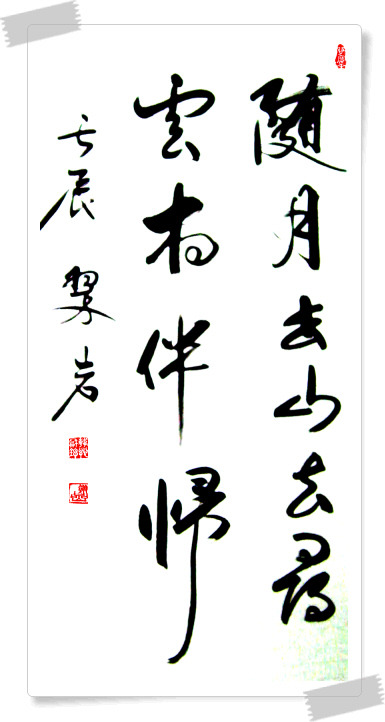 隨月出山去尋
雲相伴歸
壬辰 翠岩